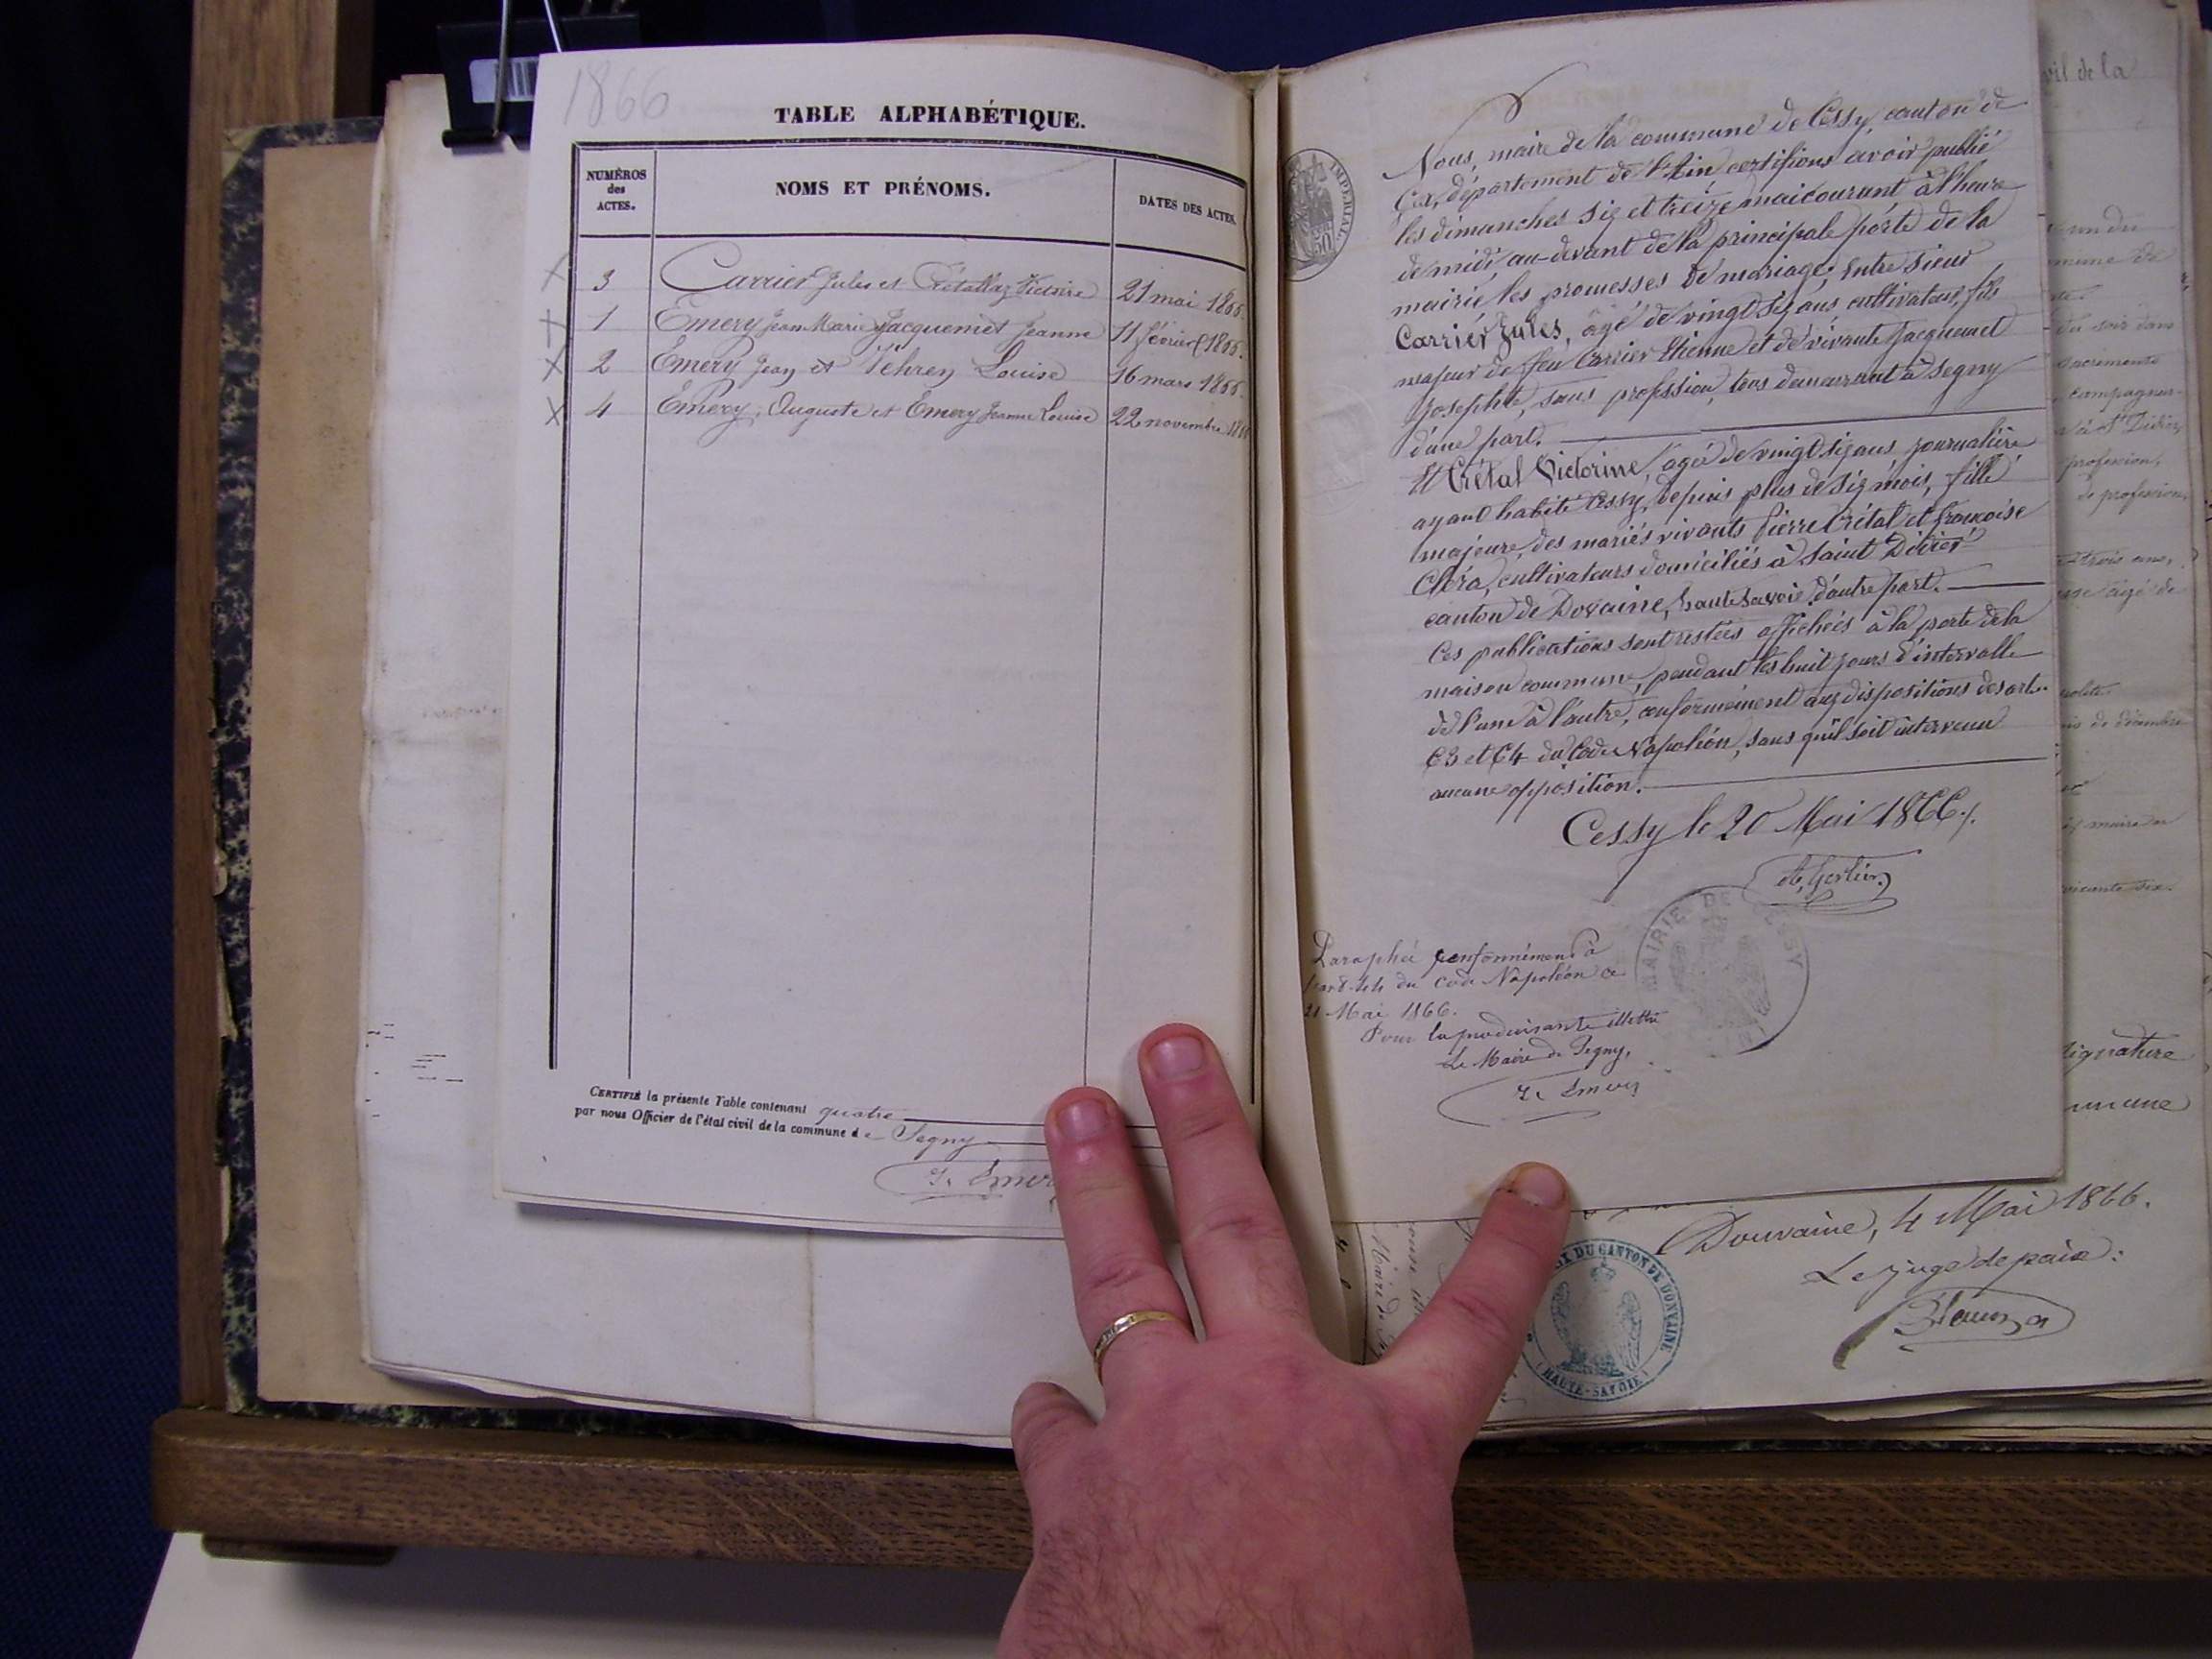 1866
TABLE ALPHABÉTIQUE.
NUMÉROS
des
ACTES.
NOMS ET PRÉNOMS.
DATES DES ACTES.
3 Carrier Jules et Victoire 21 mai 1866.
1 Emery Jean Marie Jacquemet Jeanne 11 février 1866.
2 Emery Jean et Louise 16 mars 1866.
4 Emery, Auguste et Emery Jeanne Louise 22 novembre
CERTIFIÉ la présente Table contenant quatre
par nous Officier de l'état civil de la commune de Segny
J. Emery
IMPERIAL.
50
Nous, maire de la commune de Cessy, canton de
Gex, département de l'Ain certifions avoir publié
les dimanches six et treize mai courant à l'heure
de midi, au-devant de la principale porte de la
mairie les promesses de mariage, entre sieur
Carrier Jules, agé de vingt six ans cultivateur, fils
majeur de feu Carrier Etienne et de vivante Jacquemet
Josephte, sans profession, tous demeurant à Segny
d'une part.
Et Crétal Victorine, agée de vingt six ans journalière
ayant habité Cessy, depuis plus de six mois, fille
majeure des mariés vivants Pierre Crétal et françoise
Cléra, cultivateurs domiciliés à Saint Didier
canton de Dovaine, haute Savoie, d'autre part.
Ces publications sont restées affichées à la porte de la
maison commune, pendant les huit jours d'intervalle
de l'une à l'autre, conformément aux dispositions des art.
63 et 64 du Code Napoléon, sans qu'il soit intervenu
aucune opposition.
Cessy le 20 Mai 1866.
MAIRIE DE CESSY
Paraphé conformément à
l'art 44 du Code Napoléon ce
21 Mai 1866.
Pour la produisante illettrée
Le Maire de Segny,
J. Emery
vil de la
mune de
du soir dans
campagne
à St Didier
profession,
de profession
trois ans,
agé de
de décembre
maire
soixante six.
signature
mmune
Douvaine, 4 Mai 1866.
Le juge de paix:
DU CANTON DE DONVAINE
(HAUTE-SAVOIE)